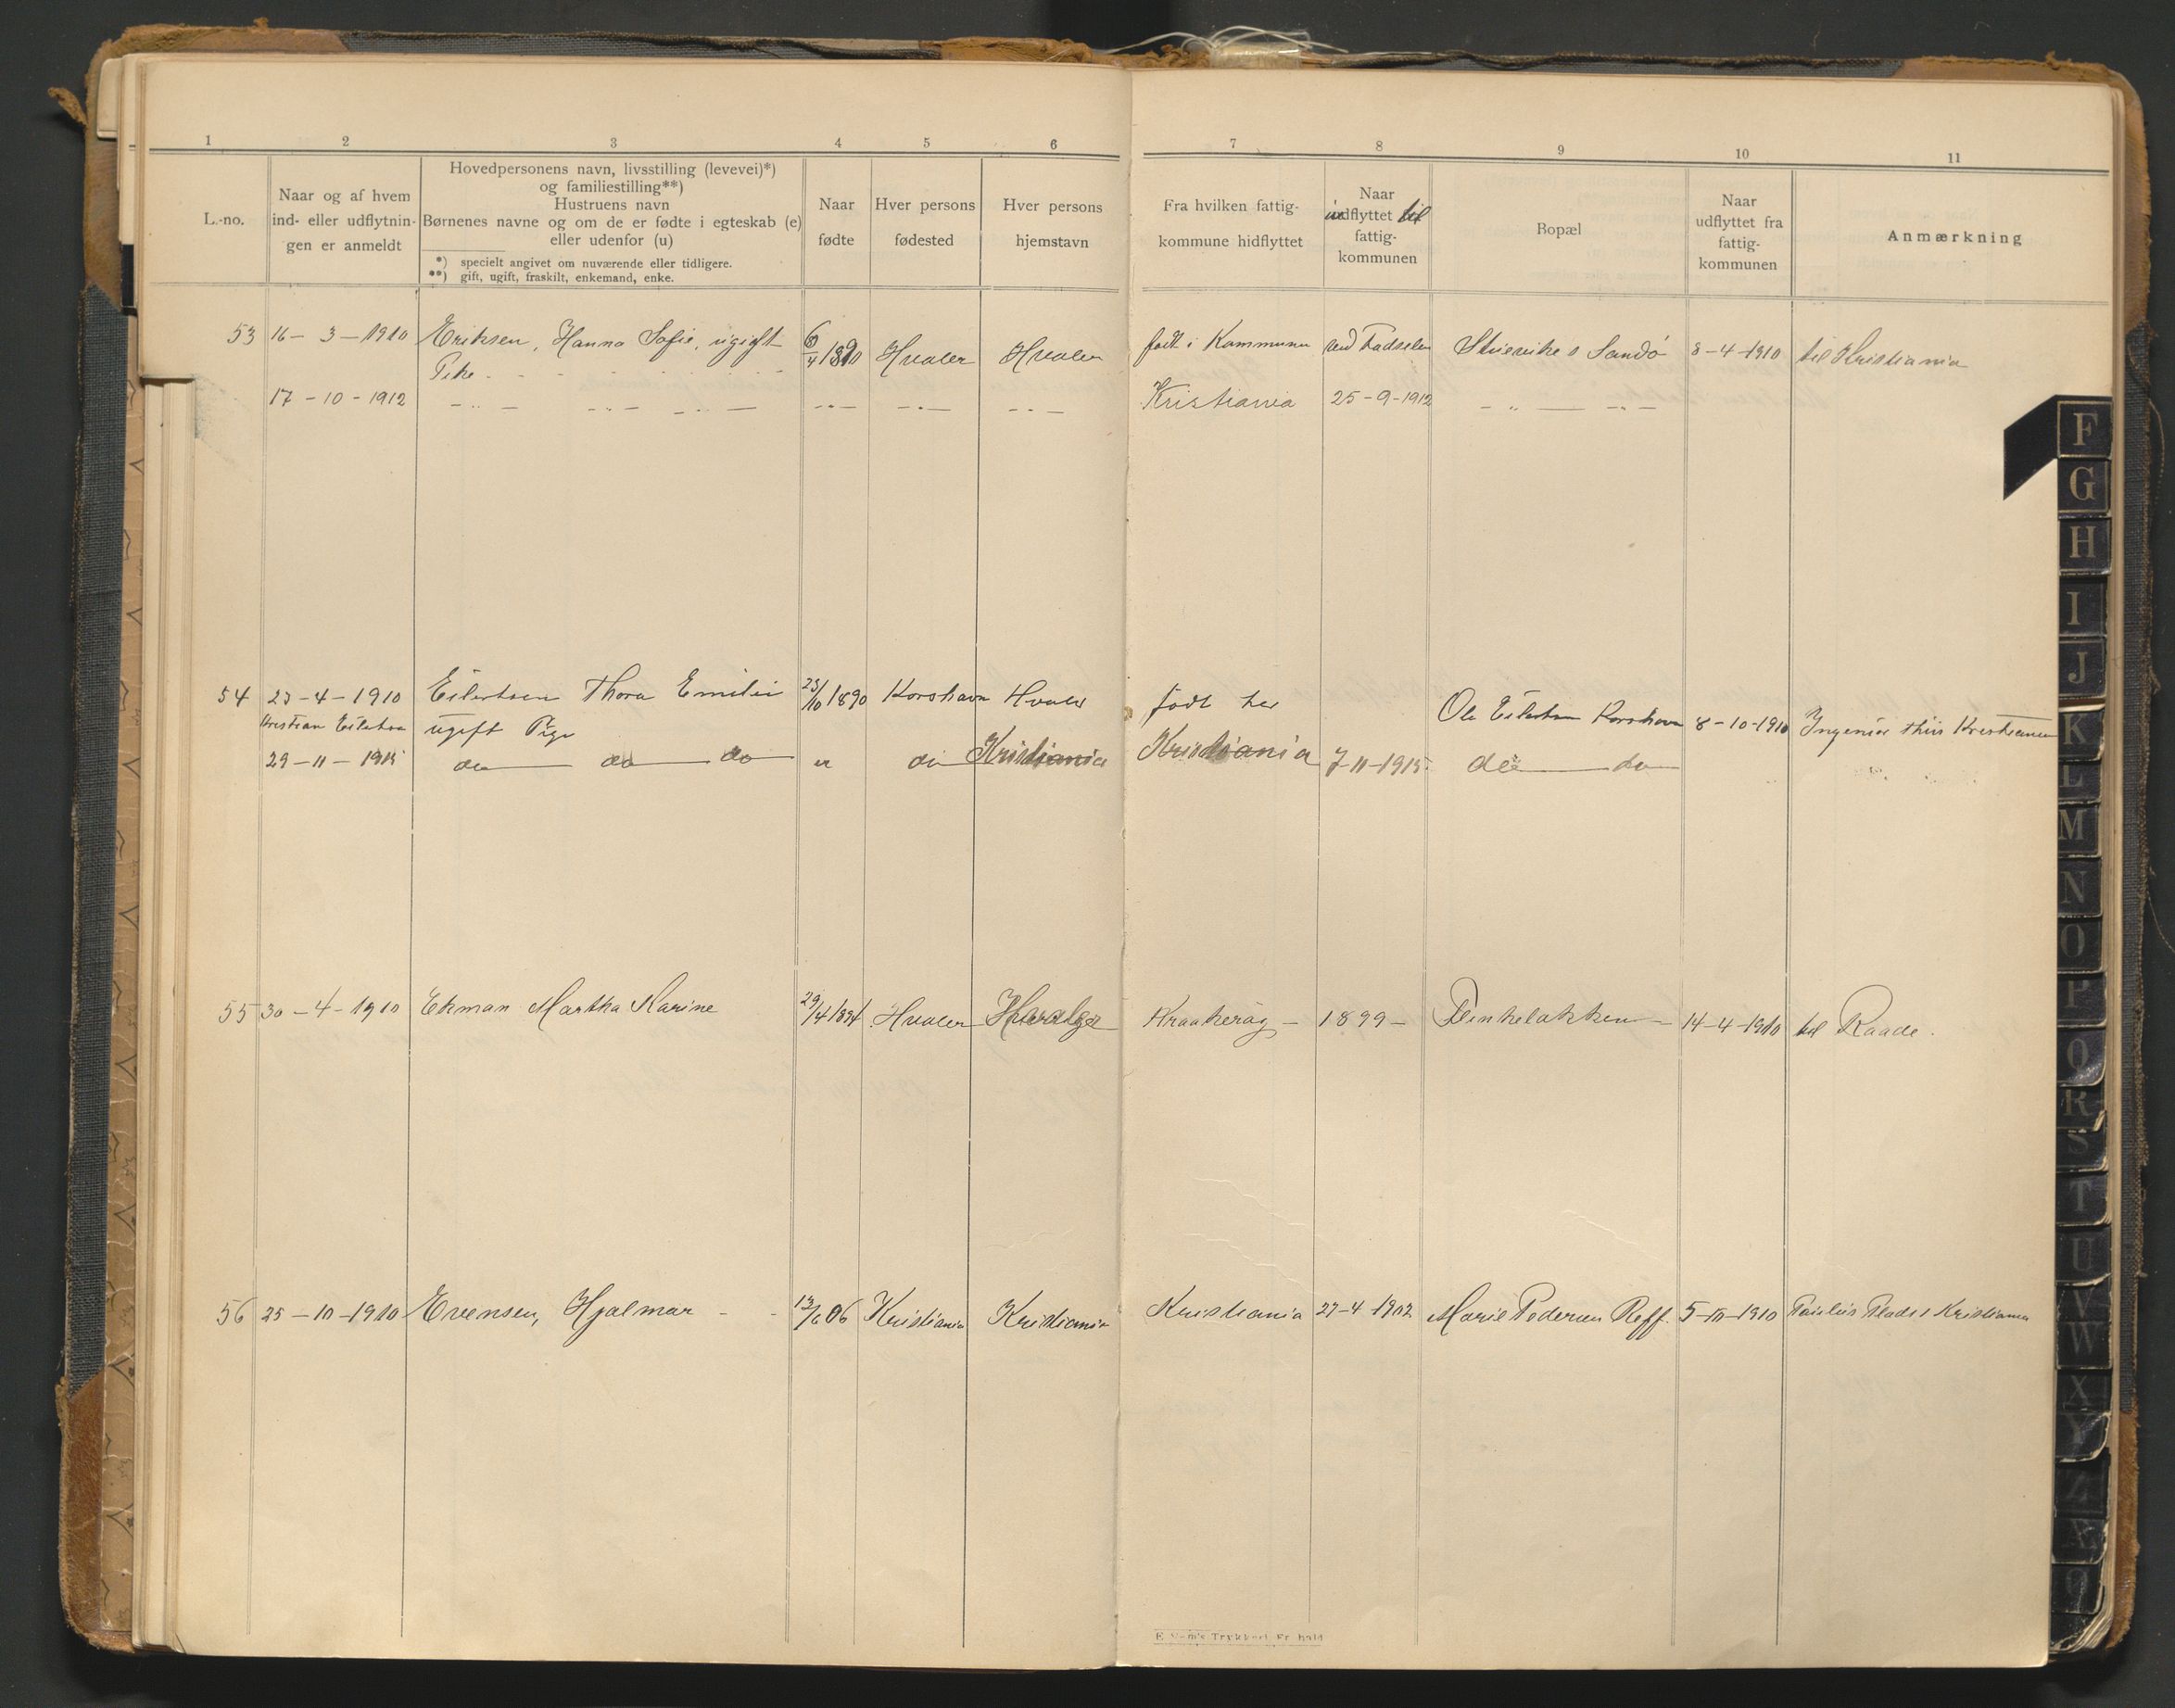 1 2 3 4 5 6 7 8 9 10 11
L.-no.
Naar og af hvem
ind- eller udflytnin-
gen er anmeldt
Hovedpersonens navn, livsstilling (levevei)*)
og familiestilling**)
Hustruens navn
Børnenes navne og om de er fødte i egteskab (e)
eller udenfor (u)
*) specielt angivet om nuværende eller tidligere.
**) gift, ugift, fraskilt, enkemand, enke.
Naar
fødte
Hver persons
fødested
Hver persons
hjemstavn
Fra hvilken fattig-
kommune hidflyttet
Naar
indflyttet til
fattig-
kommunen
Bopæl
Naar
udflyttet fra
fattig-
kommunen
Anmærkning
53 16-3-1910 Eriksen, Hanna Sofie, ugift 6/4 1890 Hvaler Hvaler født i Kommunen ved Fødselen Sandø 8-4-1910 til Kristiania
Pike
17-10-1912 -"- -"- -"- -"- -"- -"- Kristiania 25-9-1912 -"- -"-
54 23-4-1910 Eilertsen Thora Emilie 23/10 1890 Korshavn Hvaler født her Ole Eilertsen Korshavn 8-10-1910 Ingeniør Thiis Kristiania
Kristian Eilertsen ugift Pige
29-11-1915 do do do do Kristiania Kristiania 7-11-1915 do do
55 30-4-1910 Ekman Martha Karine 29/4 1894 Hvaler Kraakerøy - 1899 - 14-4-1910 til Raade.
56 25-10-1910 Evensen, Hjalmar - - 13/6 06 Kristiania Kristiania Kristiania 27-4-1902 Marie Pedersen Reff. 5-10-1910 Paulus Plads 1 Kristiania
F
G
H
I
J
K
L
M
N
O
P
Q
R
S
T
U
V
W
X
Y
Z
Æ
Ø